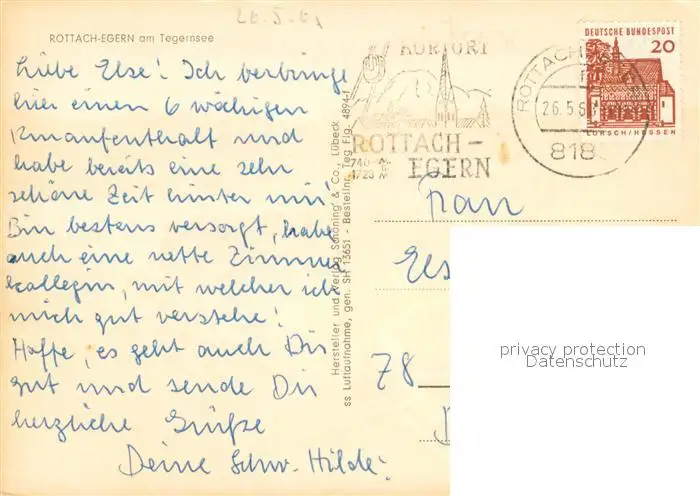 26.5.61
ROTTACH-EGERN am Tegernsee
Liebe Else! Ich verbringe
hier einen 6 wöchigen
Kuraufenthalt und
habe bereits eine sehr
schöne Zeit hinter mir.
Bin bestens versorgt, habe
auch eine nette Zimmer
kollegin, mit welcher ich
mich gut verstehe!
Hoffe, es geht auch Dir
gut und sende Dir
herzliche Grüße
Deine Schw. Hilde.
Hersteller und Verlag Schöning & Co., Lübeck
ss Luftaufnahme, gen. SH 13651 - Bestellnr. Teg Flg. 4894-f
KURORT
ROTTACH-
EGERN
740-
1720 m
ROTTACH
26.5.6
818
DEUTSCHE BUNDESPOST
20
LORSCH/HESSEN
Frau
Els
78
privacy protection
Datenschutz